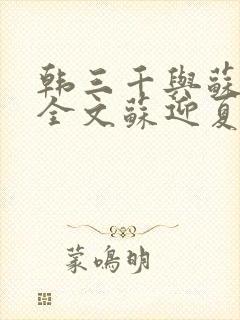 韩三千與蘇
全文蘇迎夏
蒙鳴明